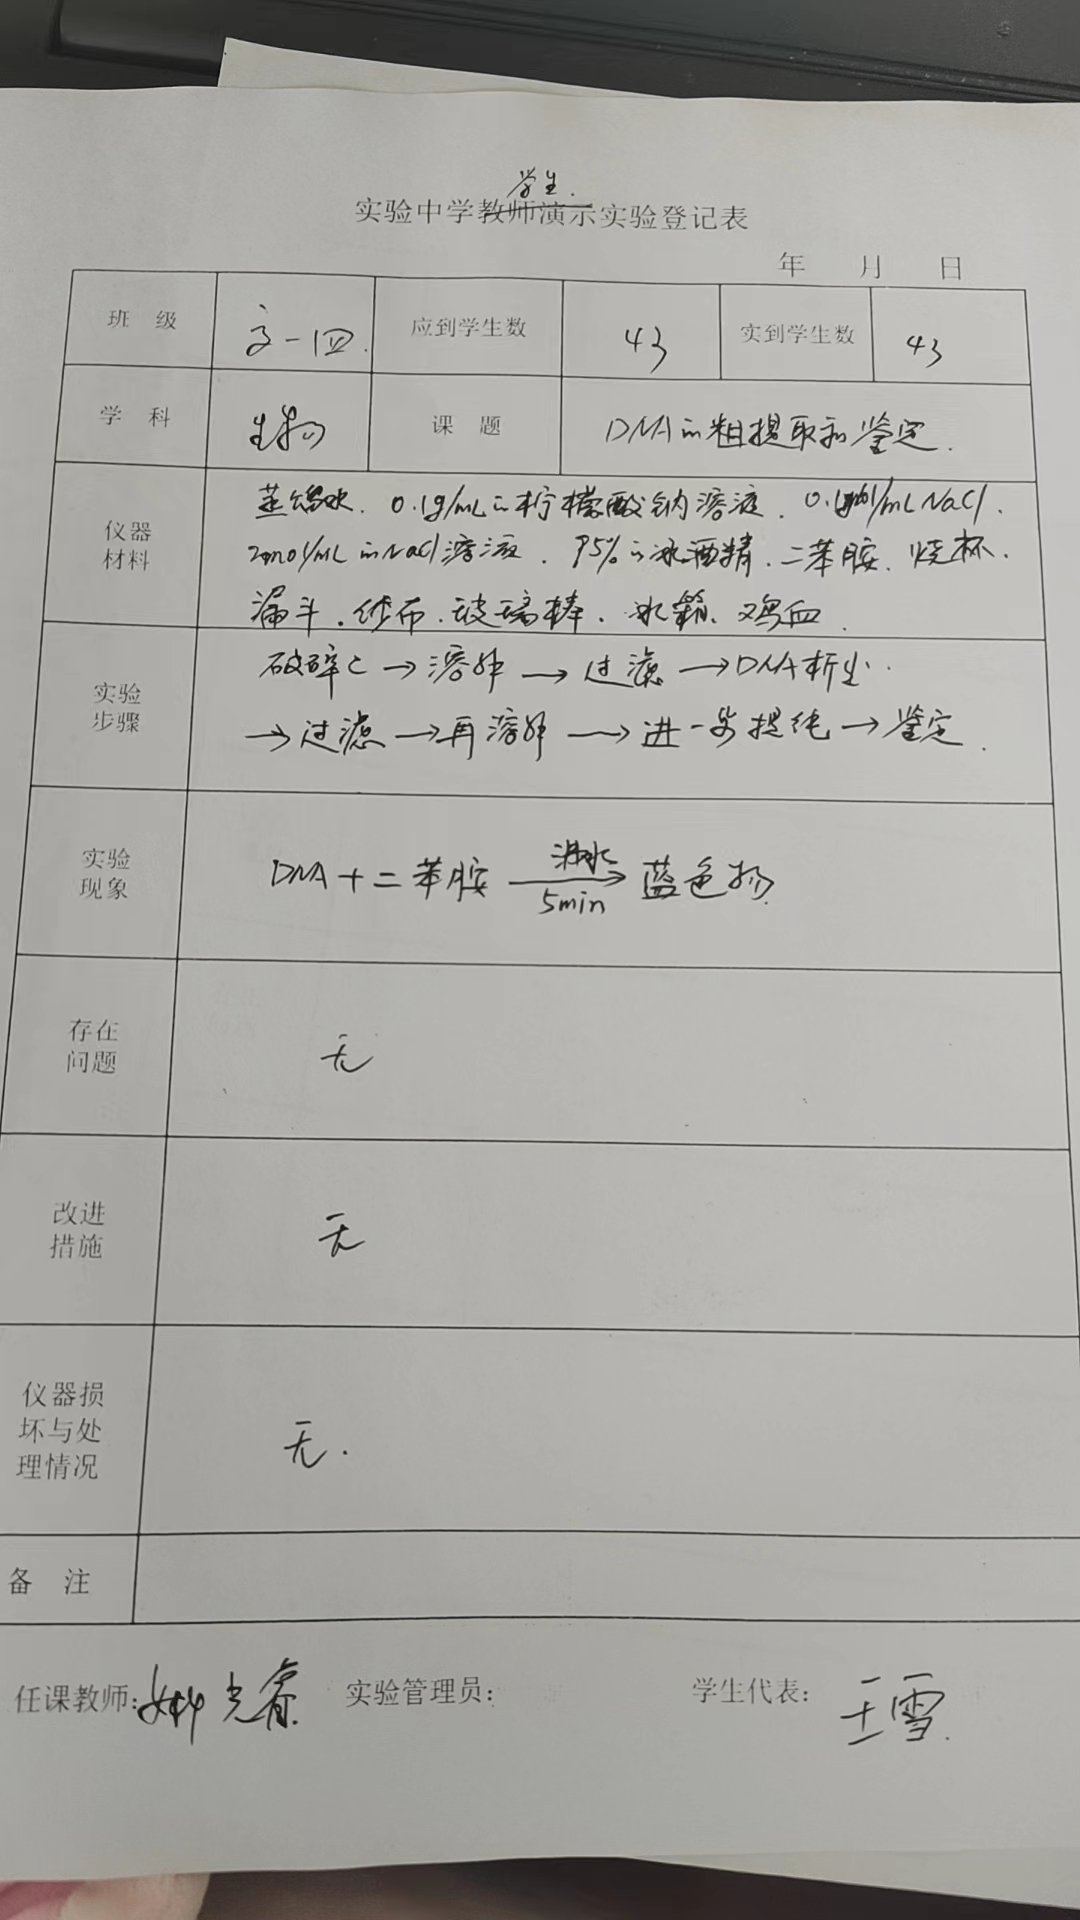 学生.
实验中学教师演示实验登记表
年 月 日
班 级 高一四. 应到学生数 43 实到学生数 43
学 科 生物 课 题 DNA的粗提取和鉴定.
仪器材料 蒸馏水. 0.1g/mL的柠檬酸钠溶液. 0.14mol/mL NaCl.
2mol/mL的NaCl溶液. 95%的冰酒精. 二苯胺. 烧杯.
漏斗. 纱布. 玻璃棒. 冰箱. 鸡血.
实验步骤 破碎 → 溶解 → 过滤 → DNA析出
→ 过滤 → 再溶解 → 进一步提纯 → 鉴定.
实验现象 DNA + 二苯胺 沸水 5min → 蓝色物.
存在问题 无
改进措施 无
仪器损坏与处理情况 无.
备 注
任课教师: 光睿 实验管理员: 学生代表: 王雪.